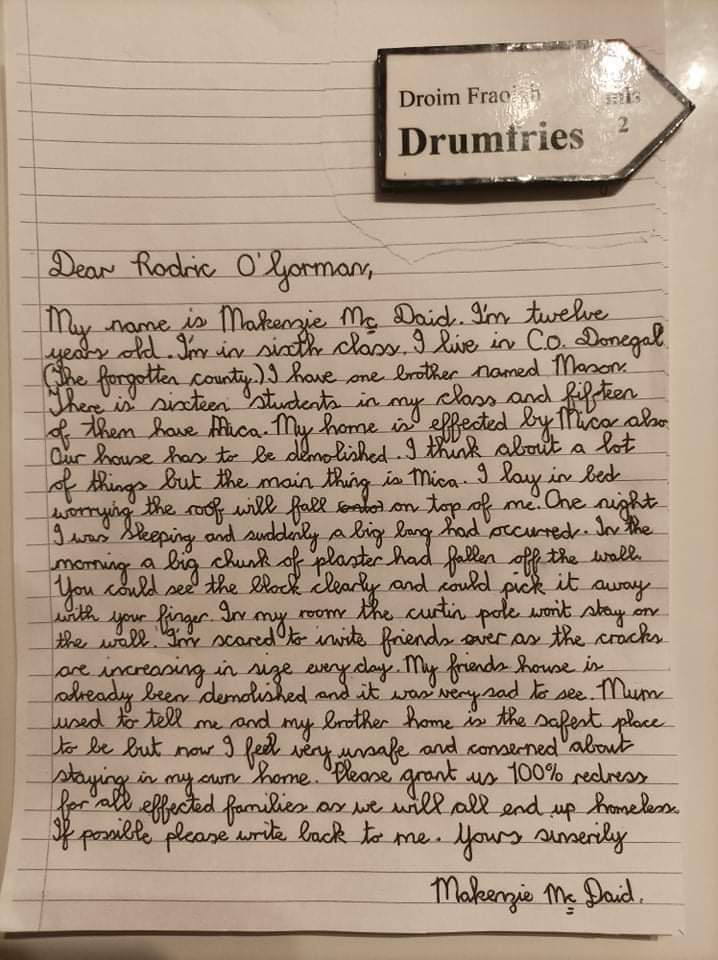 Droim Fraoigh mls
Drumfries 2
Dear Rodric O'Gorman,
My name is Makenzie Mc Daid. I'm twelve
years old. I'm in sixth class. I live in C.O. Donegal
(The forgotten county.) I have one brother named Mason.
There is sixteen students in my class and fifteen
of them have Mica. My home is effected by Mica also
Our house has to be demolished. I think about a lot
of things but the main thing is Mica. I lay in bed
worrying the roof will fall on top of me. One night
I was sleeping and suddenly a big bang had occurred. In the
morning a big chunk of plaster had fallen off the wall.
You could see the block clearly and could pick it away
with your finger. In my room the curtin pole won't stay on
the wall. I'm scared to invite friends over as the cracks
are increasing in size every day. My friends house is
already been demolished and it was very sad to see. Mum
used to tell me and my brother home is the safest place
to be but now I feel very unsafe and conserned about
staying in my own home. Please grant us 100% redress
for all effected families as we will all end up homeless.
If possible please write back to me. Yours sinserily
Makenzie Mc Daid.